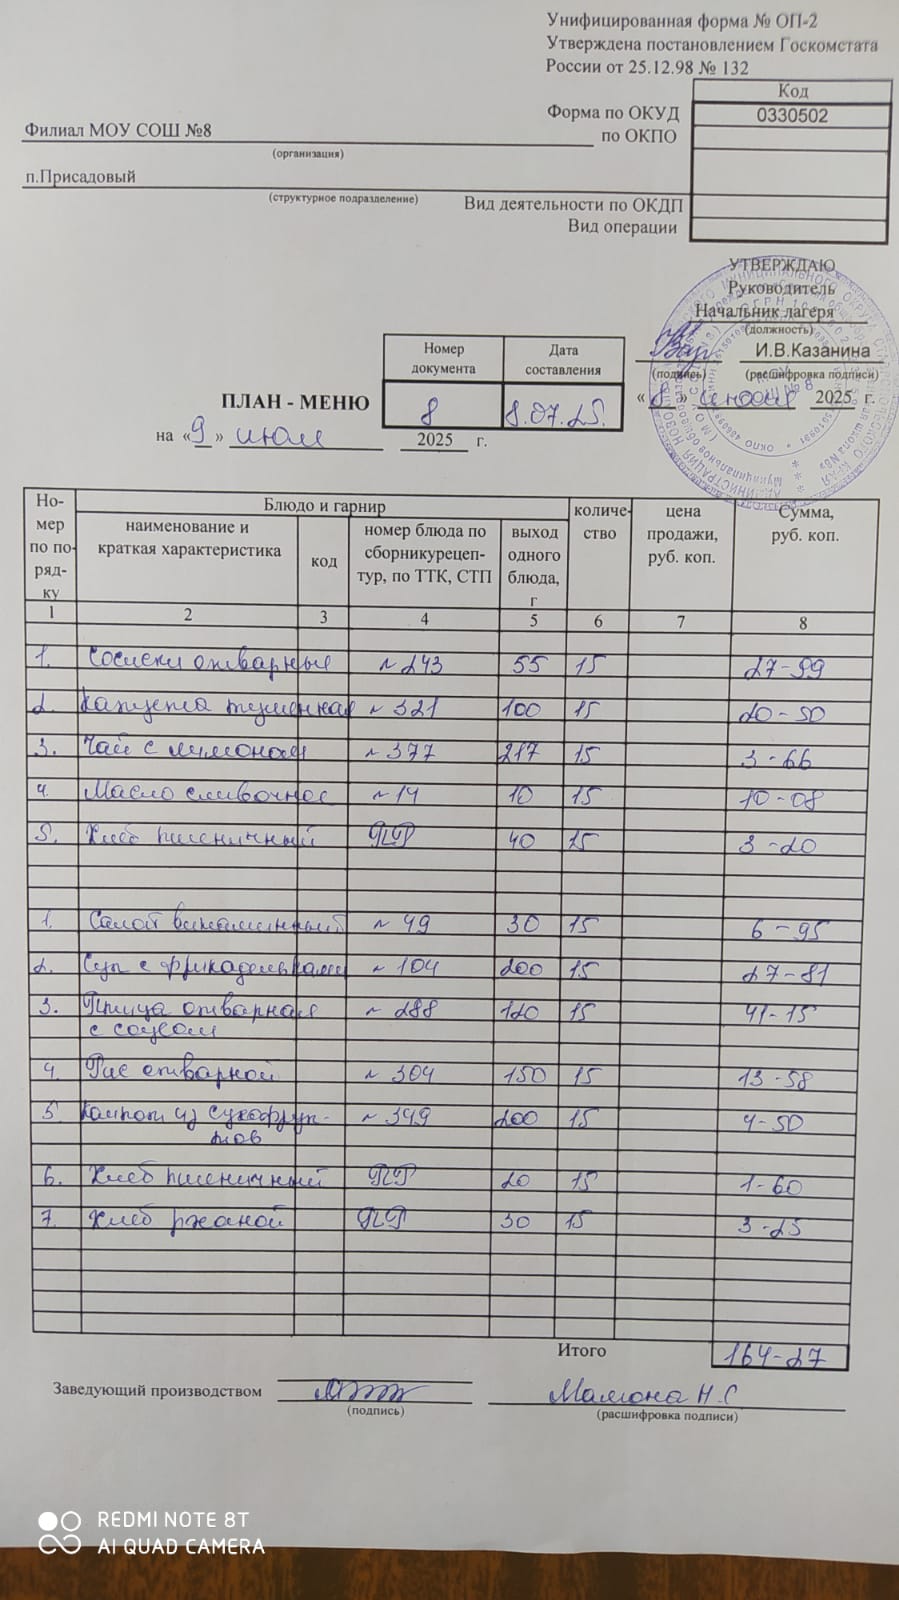 Унифицированная форма № ОП-2
Утверждена постановлением Госкомстата
России от 25.12.98 № 132
Код
Форма по ОКУД 0330502
Филиал МОУ СОШ №8
по ОКПО
(организация)
п.Присадовый
(структурное подразделение)
Вид деятельности по ОКДП
Вид операции
УТВЕРЖДАЮ
Руководитель
Начальник лагеря
(должность)
И.В.Казанина
(подпись) (расшифровка подписи)
« 8 » июля 2025 г.
Номер документа Дата составления
ПЛАН - МЕНЮ 8 8.07.25.
на « 9 » июля 2025 г.
Но-мер по по-ряд-ку Блюдо и гарнир количе-ство цена продажи, руб. коп. Сумма, руб. коп.
наименование и краткая характеристика код номер блюда по сборникурецеп-тур, по ТТК, СТП выход одного блюда, г
1 2 3 4 5 6 7 8
1. Сосиски отварные № 243 55 15 27-99
2. Капуста тушенная № 321 100 15 20-50
3. Чай с лимоном № 377 217 15 3-66
4. Масло сливочное № 14 10 15 10-08
5. Хлеб пшеничный ПР 40 15 3-20
1. Салат витаминный № 49 30 15 6-95
2. Суп с фрикадельками № 104 200 15 27-81
3. Птица отварная № 288 120 15 41-15
с соусом
4. Рис отварной № 304 150 15 13-58
5. Компот из сухофрук-
тов № 349 200 15 4-50
6. Хлеб пшеничный ПР 20 15 1-60
7. Хлеб ржаной ПР 30 15 3-25
Итого 164-27
Заведующий производством Мамона Н.С
(подпись) (расшифровка подписи)
REDMI NOTE 8T
AI QUAD CAMERA